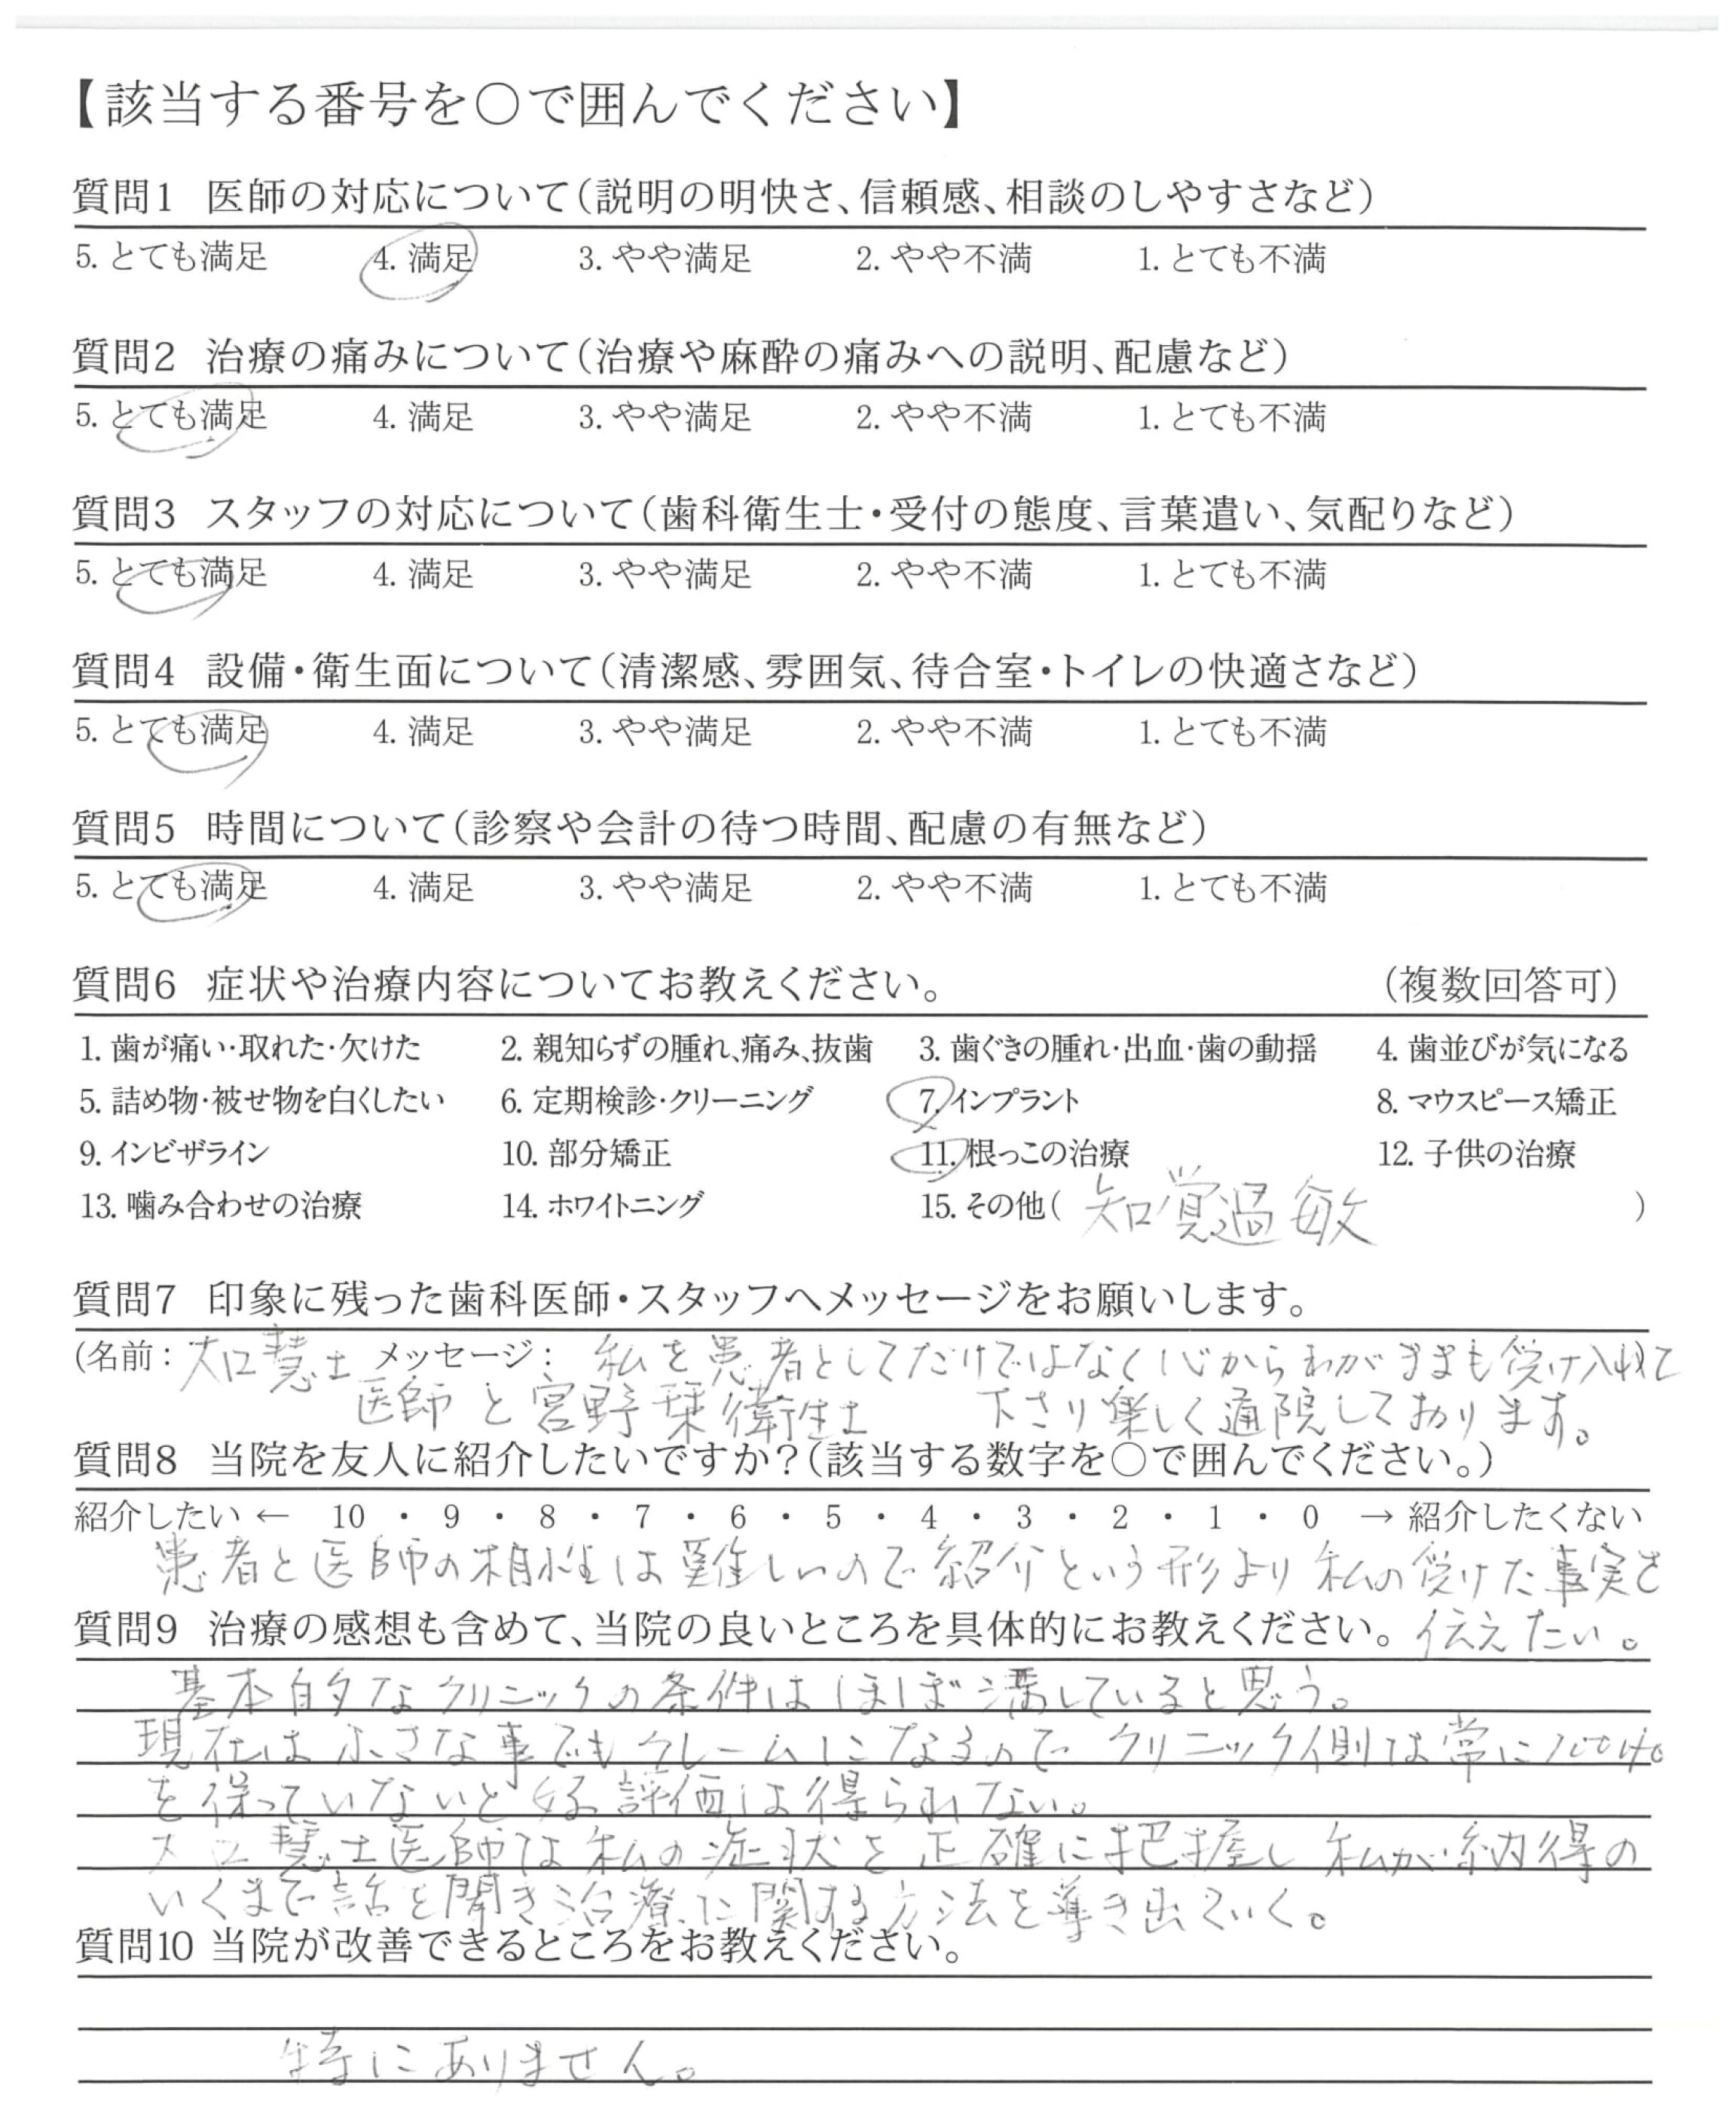 【該当する番号を○で囲んでください】
質問1 医師の対応について(説明の明快さ、信頼感、相談のしやすさなど)
5. とても満足 4. 満足 3. やや満足 2. やや不満 1. とても不満
質問2 治療の痛みについて(治療や麻酔の痛みへの説明、配慮など)
5. とても満足 4. 満足 3. やや満足 2. やや不満 1. とても不満
質問3 スタッフの対応について(歯科衛生士・受付の態度、言葉遣い、気配りなど)
5. とても満足 4. 満足 3. やや満足 2. やや不満 1. とても不満
質問4 設備・衛生面について(清潔感、雰囲気、待合室・トイレの快適さなど)
5. とても満足 4. 満足 3. やや満足 2. やや不満 1. とても不満
質問5 時間について(診察や会計の待つ時間、配慮の有無など)
5. とても満足 4. 満足 3. やや満足 2. やや不満 1. とても不満
質問6 症状や治療内容についてお教えください。 (複数回答可)
1. 歯が痛い・取れた・欠けた 2. 親知らずの腫れ、痛み、抜歯 3. 歯ぐきの腫れ・出血・歯の動揺 4. 歯並びが気になる
5. 詰め物・被せ物を白くしたい 6. 定期検診・クリーニング 7. インプラント 8. マウスピース矯正
9. インビザライン 10. 部分矯正 11. 根っこの治療 12. 子供の治療
13. 噛み合わせの治療 14. ホワイトニング 15. その他( 知覚過敏 )
質問7 印象に残った歯科医師・スタッフへメッセージをお願いします。
(名前: 大口慧士 メッセージ: 私を患者としてだけではなく心からわがままも受け入れて
医師と宮野栞衛生士 下さり楽しく通院しております。
質問8 当院を友人に紹介したいですか?(該当する数字を○で囲んでください。)
紹介したい ← 10 ・ 9 ・ 8 ・ 7 ・ 6 ・ 5 ・ 4 ・ 3 ・ 2 ・ 1 ・ 0 → 紹介したくない
患者と医師の相性は難しいので紹介という形より私の受けた事実を
質問9 治療の感想も含めて、当院の良いところを具体的にお教えください。 伝えたい。
基本的なクリニックの条件はほぼ満していると思う。
現在は小さな事でもクレームになるのでクリニック側は常に100%
を保っていないと好評価は得られない。
大口慧士医師は私の症状を正確に把握し私が納得の
いくまで話を聞き治療に関する方法を導き出していく。
質問10 当院が改善できるところをお教えください。
特にありません。